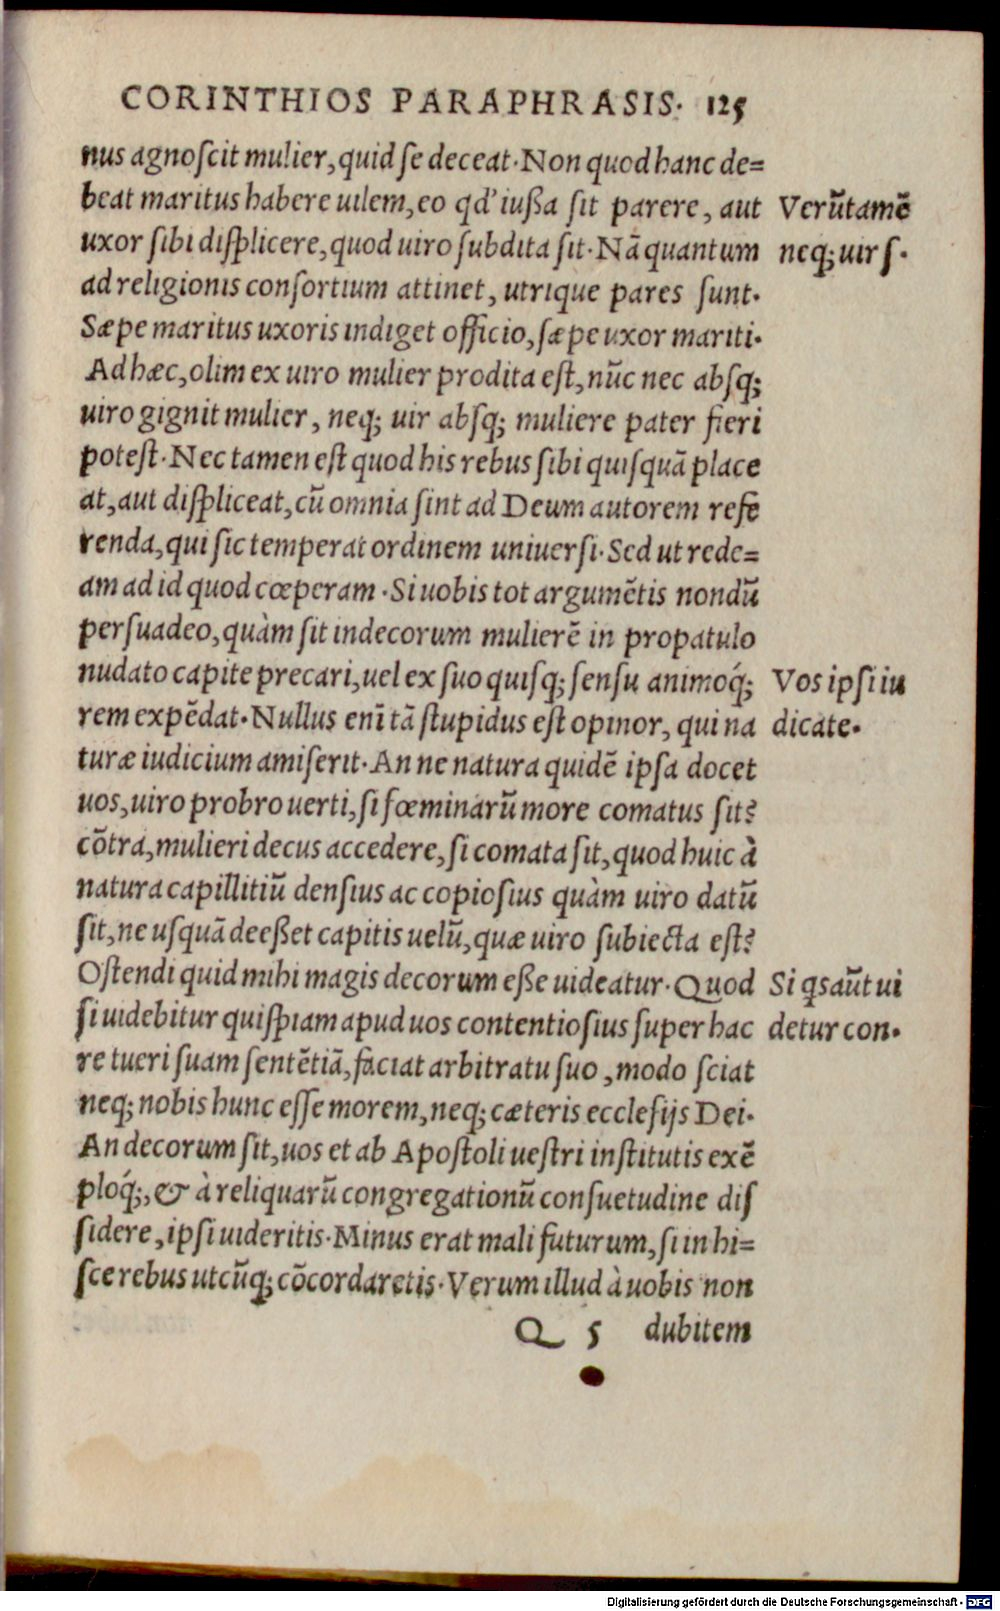 CORINTHIOS PARAPHRASIS. 125
nus agnoſcit mulier, quid ſe deceat. Non quod hanc de=
beat maritus habere uilem, eo qd' iuſſa ſit parere, aut
uxor ſibi diſplicere, quod uiro ſubdita ſit. Nā quantum
ad religionis conſortium attinet, utrique pares ſunt.
Sæpe maritus uxoris indiget officio, ſæpe uxor mariti.
Ad hæc, olim ex uiro mulier prodita eſt, nūc nec abſq;
uiro gignit mulier, neq; uir abſq; muliere pater fieri
poteſt. Nec tamen eſt quod his rebus ſibi quiſquā place
at, aut diſpliceat, cū omnia ſint ad Deum autorem refe
renda, qui ſic temperat ordinem uniuerſi. Sed ut rede=
am ad id quod cœperam. Si uobis tot argumētis nondū
perſuadeo, quàm ſit indecorum mulierē in propatulo
nudato capite precari, uel ex ſuo quiſq; ſenſu animoq́;
rem expēdat. Nullus enī tā ſtupidus eſt opinor, qui na
turæ iudicium amiſerit. An ne natura quidē ipſa docet
uos, uiro probro uerti, ſi fœminarū more comatus ſit?
cōtra, mulieri decus accedere, ſi comata ſit, quod huic à
natura capillitiū denſius ac copioſius quàm uiro datū
ſit, ne uſquā deeſſet capitis uelū, quæ uiro ſubiecta eſt?
Oſtendi quid mihi magis decorum eſſe uideatur. Quod
ſi uidebitur quiſpiam apud uos contentioſius ſuper hac
re tueri ſuam ſentētiā, faciat arbitratu ſuo, modo ſciat
neq; nobis hunc eſſe morem, neq; cæteris eccleſijs Dei.
An decorum ſit, uos et ab Apoſtoli ueſtri inſtitutis exē
ploq́;, & à reliquarū congregationū conſuetudine diſ
ſidere, ipſi uideritis. Minus erat mali futurum, ſi in hi=
ſce rebus utcūq; cōcordaretis. Verum illud à uobis non
Q 5 dubitem
Verūtamē
neq; uir ſ.
Vos ipſi iu
dicate.
Si qs aūt ui
detur con.
Digitalisierung gefördert durch die Deutsche Forschungsgemeinschaft - DFG